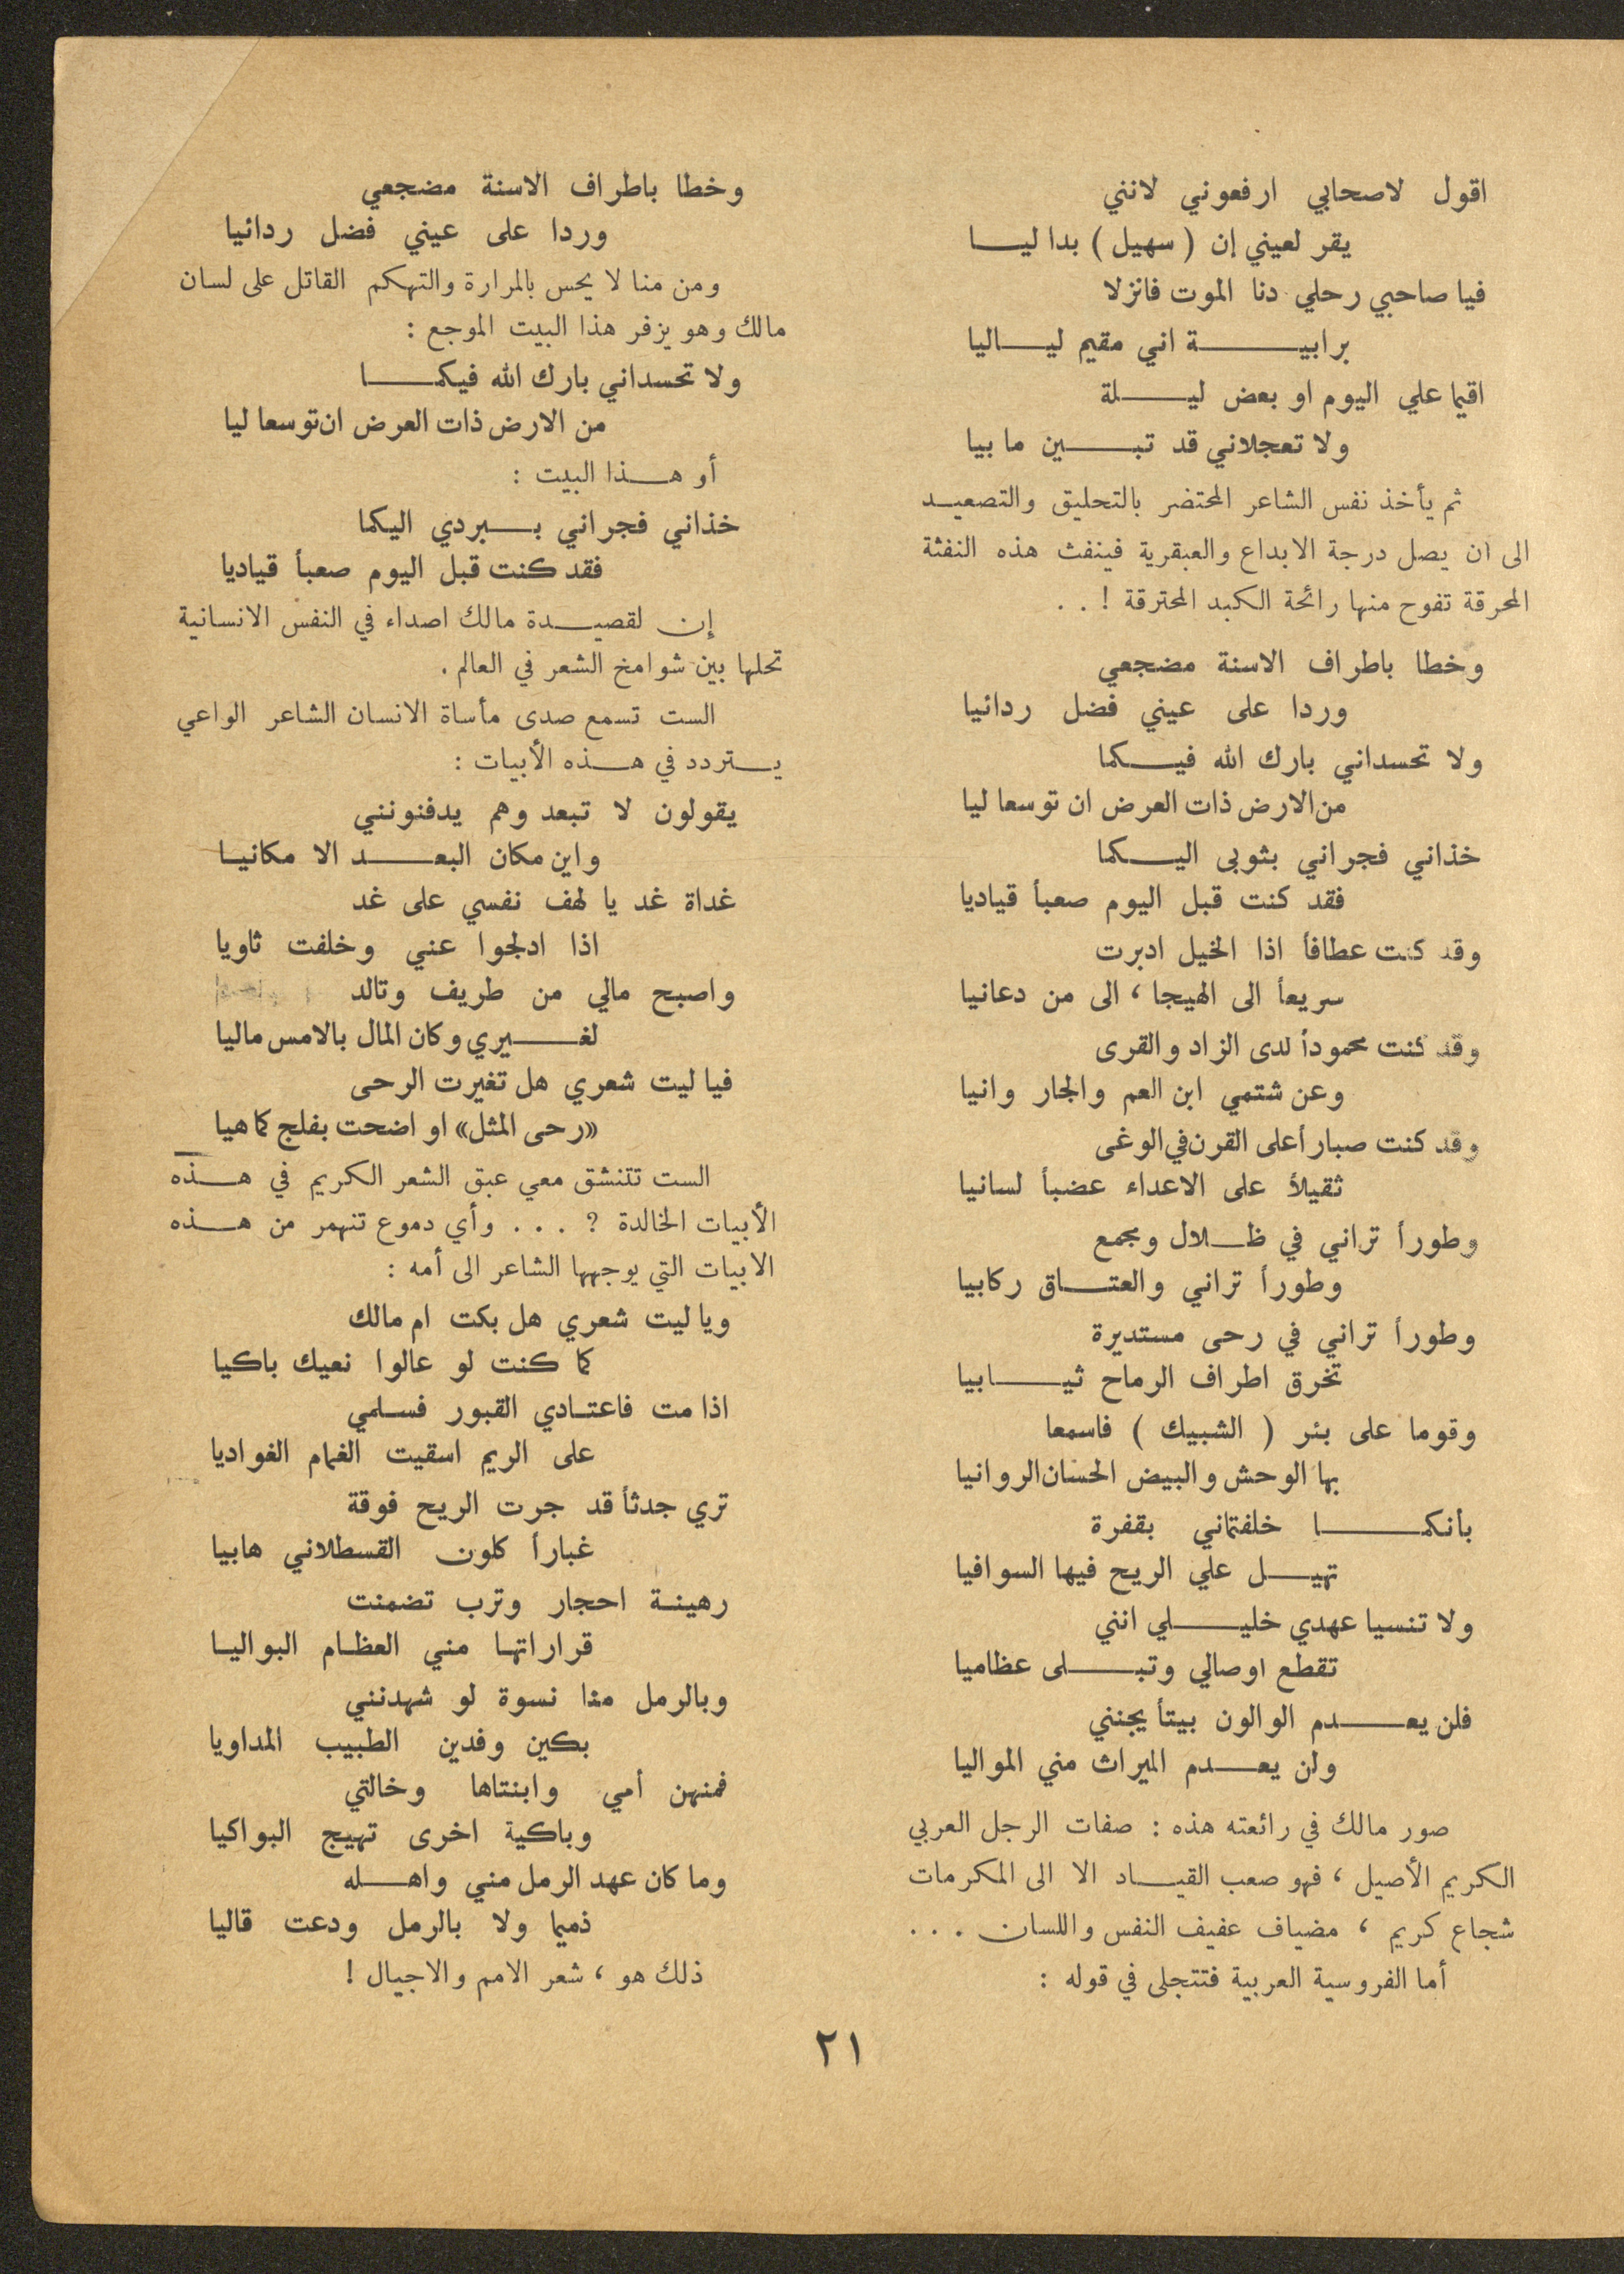 اقول لاصحابي ارفعوني لانني
يقر لعيني إن ( سهيل ) بدا ليا
فيا صاحبي رحلي دنا الموت فانزلا
برابية اني مقيم لياليا
اقيما علي اليوم او بعض ليلة
ولا تعجلاني قد تبين ما بيا
ثم يأخذ نفس الشاعر المحتضر بالتحليق والتصعيد
الى ان يصل درجة الابداع والعبقرية فينفث هذه النفثة
المحرقة تفوح منها رائحة الكبد المحترقة ! . .
وخطا باطراف الاسنة مضجعي
وردا على عيني فضل ردائيا
ولا تحسداني بارك الله فيكما
من الارض ذات العرض ان توسعا ليا
خذاني فجراني بثوبى اليكما
فقد كنت قبل اليوم صعبأ قياديا
وقد كنت عطافأ اذا الخيل ادبرت
سريعأ الى الهيجا ، الى من دعانيا
وقد كنت محمودأ لدى الزاد والقرى
وعن شتمي ابن العم والجار وانيا
وقد كنت صبارأ على القرن في الوغى
ثقيلأ على الاعداء عضبأ لسانيا
وطورأ تراني في ظلال ومجمع
وطورأ تراني والعتاق ركابيا
وطورأ تراني في رحى مستديرة
تخرق اطراف الرماح ثيابيا
وقوما على بئر ( الشبيك ) فاسمعا
بها الوحش والبيض الحسان الروانيا
بأنكما خلفتماني بقفرة
تهيل علي الريح فيها السوافيا
ولا تنسيا عهدي خليلي انني
تقطع اوصالي وتبلى عظاميا
فلن يعدم الوالون بيتأ يجنني
ولن يعدم الميراث مني المواليا
صور مالك في رائعته هذه : صفات الرجل العربي
الكريم الأصيل ، فهو صعب القياد الا الى المكرمات
شجاع كريم ، مضياف عفيف النفس واللسان . . .
أما الفروسية العربية فتتجلى في قوله :
وخطا باطراف الاسنة مضجعي
وردا على عيني فضل ردائيا
ومن منا لا يحس بالمرارة والتهكم القاتل على لسان
مالك وهو يزفر هذا البيت الموجع :
ولا تحسداني بارك الله فيكما
من الارض ذات العرض ان توسعا ليا
أو هذا البيت :
خذاني فجراني ببردي اليكما
فقد كنت قبل اليوم صعبأ قياديا
إن لقصيدة مالك اصداء في النفس الانسانية
تحلها بين شوامخ الشعر في العالم .
الست تسمع صدى مأساة الانسان الشاعر الواعي
يتردد في هذه الأبيات :
يقولون لا تبعد وهم يدفنونني
واين مكان البعد الا مكانيا
غداة غد يا لهف نفسي على غد
اذا ادلجوا عني وخلفت ثاويا
واصبح مالي من طريف وتالد
لغيري وكان المال بالامس ماليا
فيا ليت شعري هل تغيرت الرحى
«رحى المثل» او اضحت بفلج كما هيا
الست تتنشق معي عبق الشعر الكريم في هذه
الأبيات الخالدة ؟ . . . وأي دموع تنهمر من هذه
الابيات التي يوجهها الشاعر الى أمه :
ويا ليت شعري هل بكت ام مالك
كما كنت لو عالوا نعيك باكيا
اذا مت فاعتادي القبور فسلمي
على الريم اسقيت الغمام الغواديا
تري جدثأ قد جرت الريح فوقة
غبارأ كلون القسطلاني هابيا
رهينة احجار وترب تضمنت
قراراتها مني العظام البواليا
وبالرمل منا نسوة لو شهدنني
بكين وفدين الطبيب المداويا
فمنهن أمي وابنتاها وخالتي
وباكية اخرى تهيج البواكيا
وما كان عهد الرمل مني واهله
ذميما ولا بالرمل ودعت قاليا
ذلك هو ، شعر الامم والاجيال !
٢١